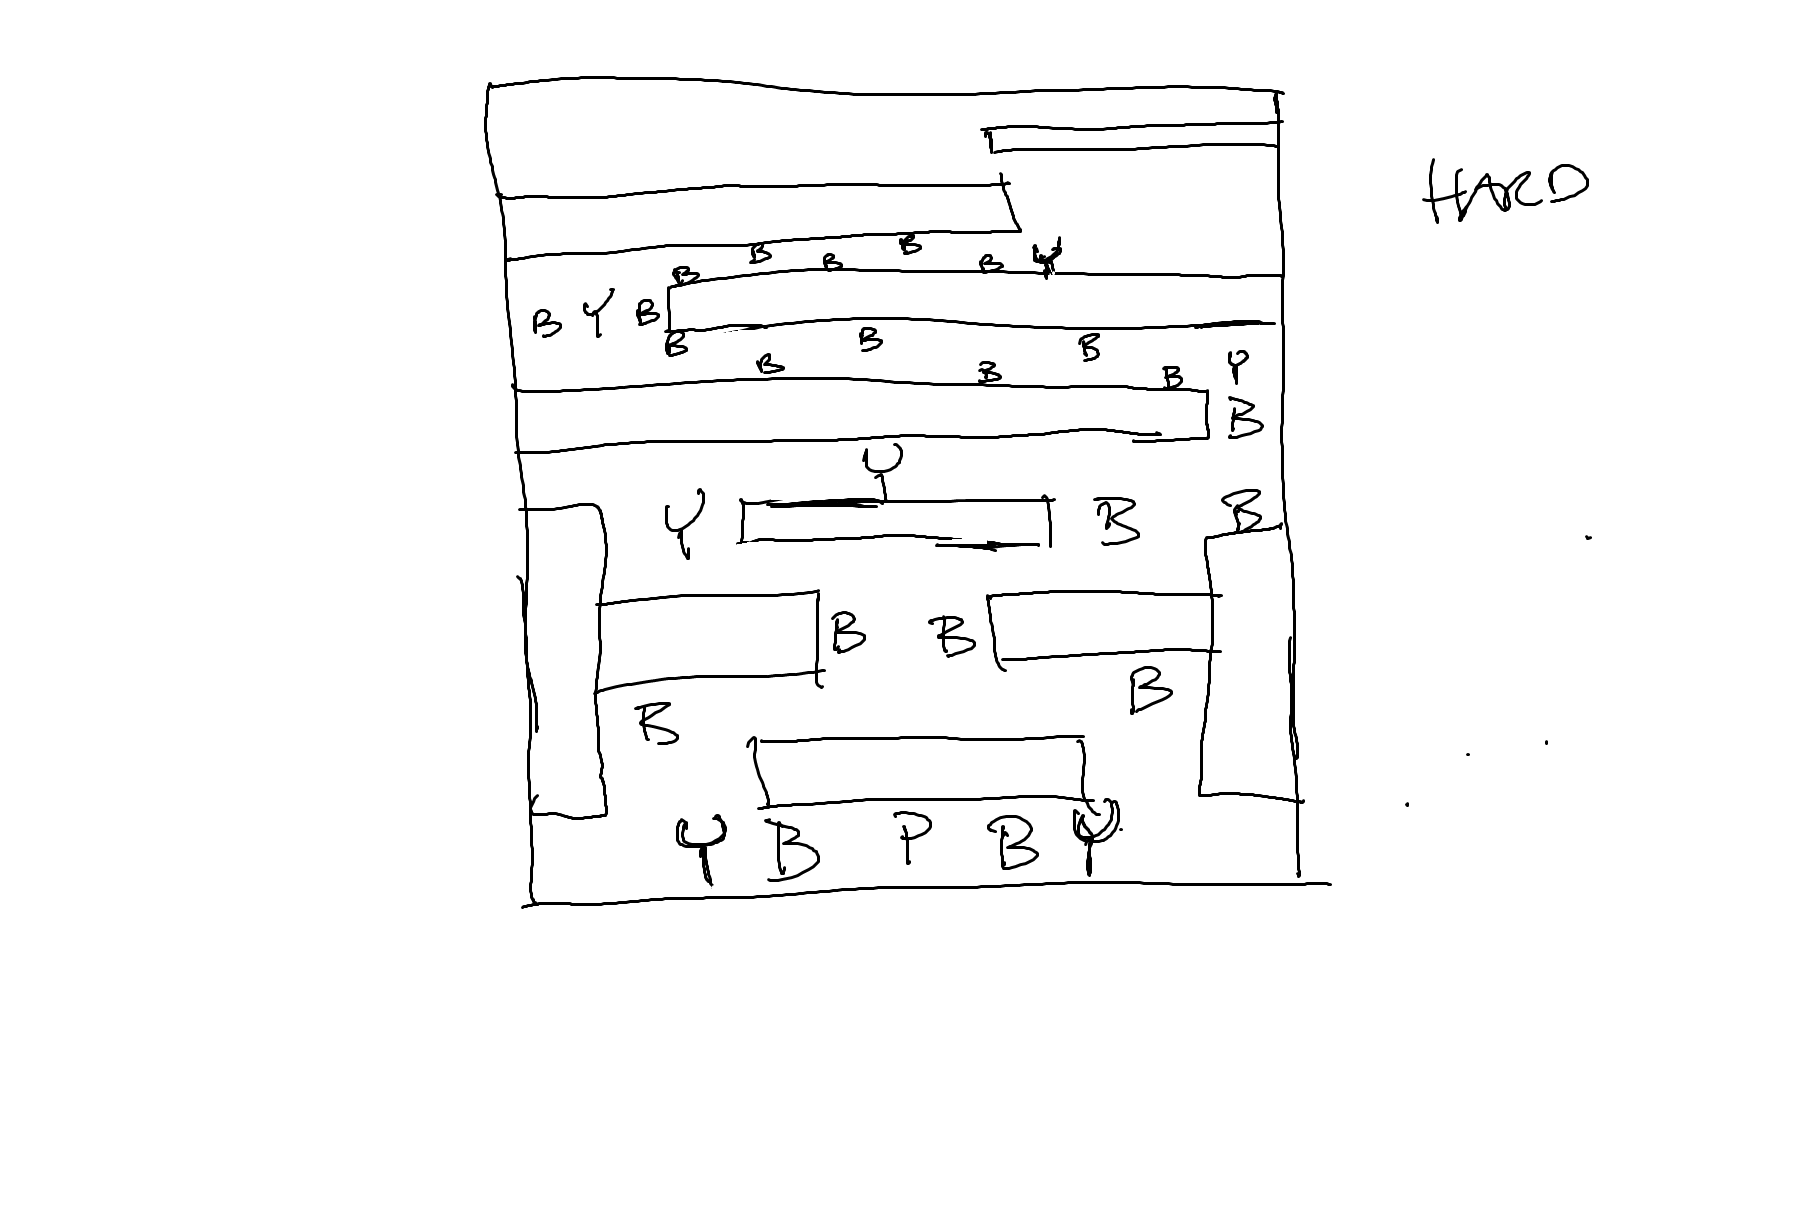 HARD
B B B B B Y
B Y B
B B B B B B Y
B
Y
Y B B
B B
B B
Y B P B Y